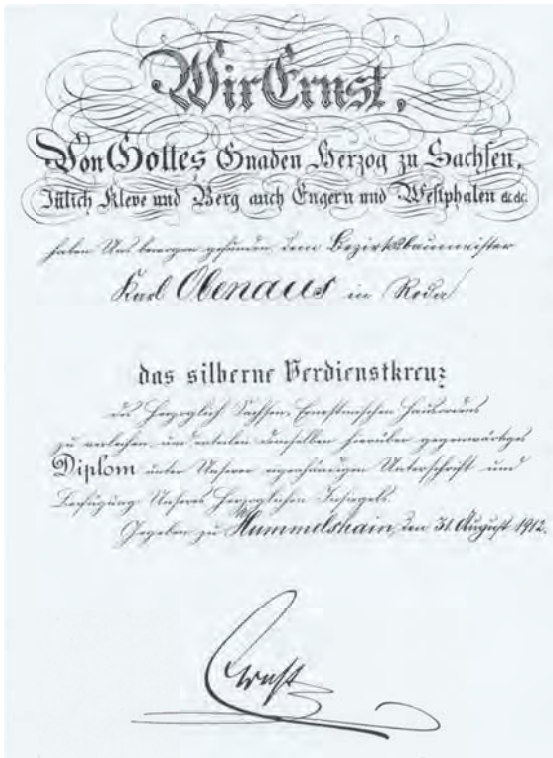 Wir Ernst,
Von Gottes Gnaden Herzog zu Sachsen,
Jülich Kleve und Berg auch Engern und Westphalen &c.&c.
haben Uns bewogen gefunden, dem Bezirksbaumeister
Karl Obenaus in Roda
das silberne Verdienstkreuz
des Herzoglich Sachsen-Ernestinischen Hausordens
zu verleihen und erteilen demselben hierüber gegenwärtiges
Diplom unter Unserer eigenhändigen Unterschrift und
Beifügung Unseres Herzoglichen Insiegels.
Gegeben zu Hummelshain, den 31. August 1912.
Ernst